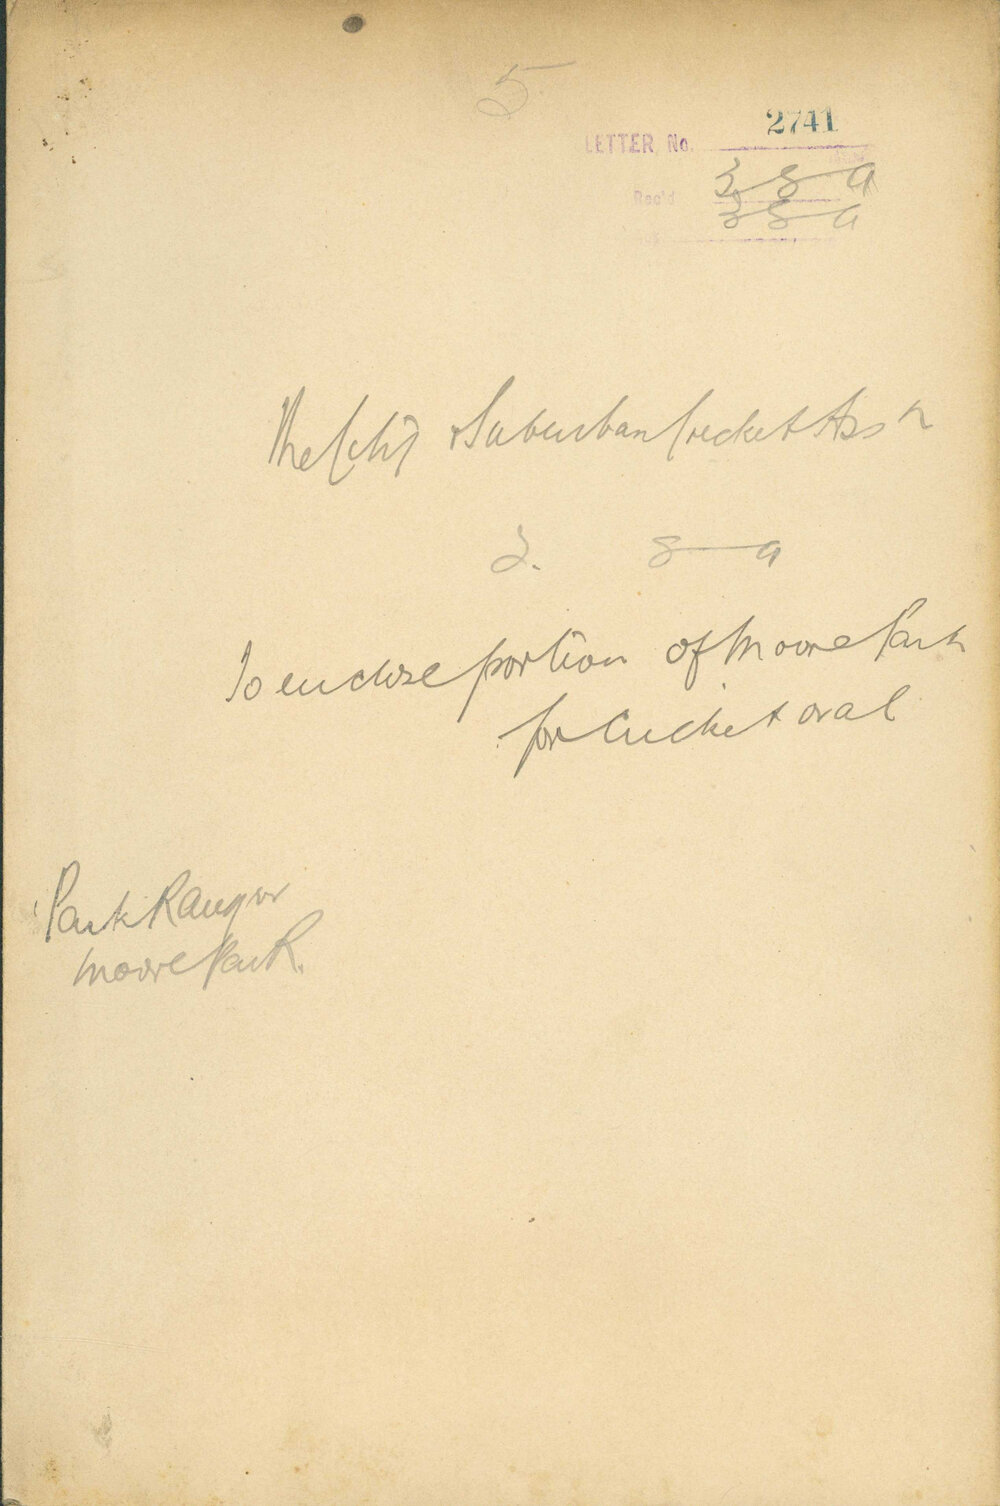 5
2741
LETTER No.
Rec'd 3. 8 – 9
3 8 – 9
The City & Suburban Cricket Assn
3. 8 – 9
To enclose portion of Moore Park
for Cricket oval
Park Ranger
Moore Park.